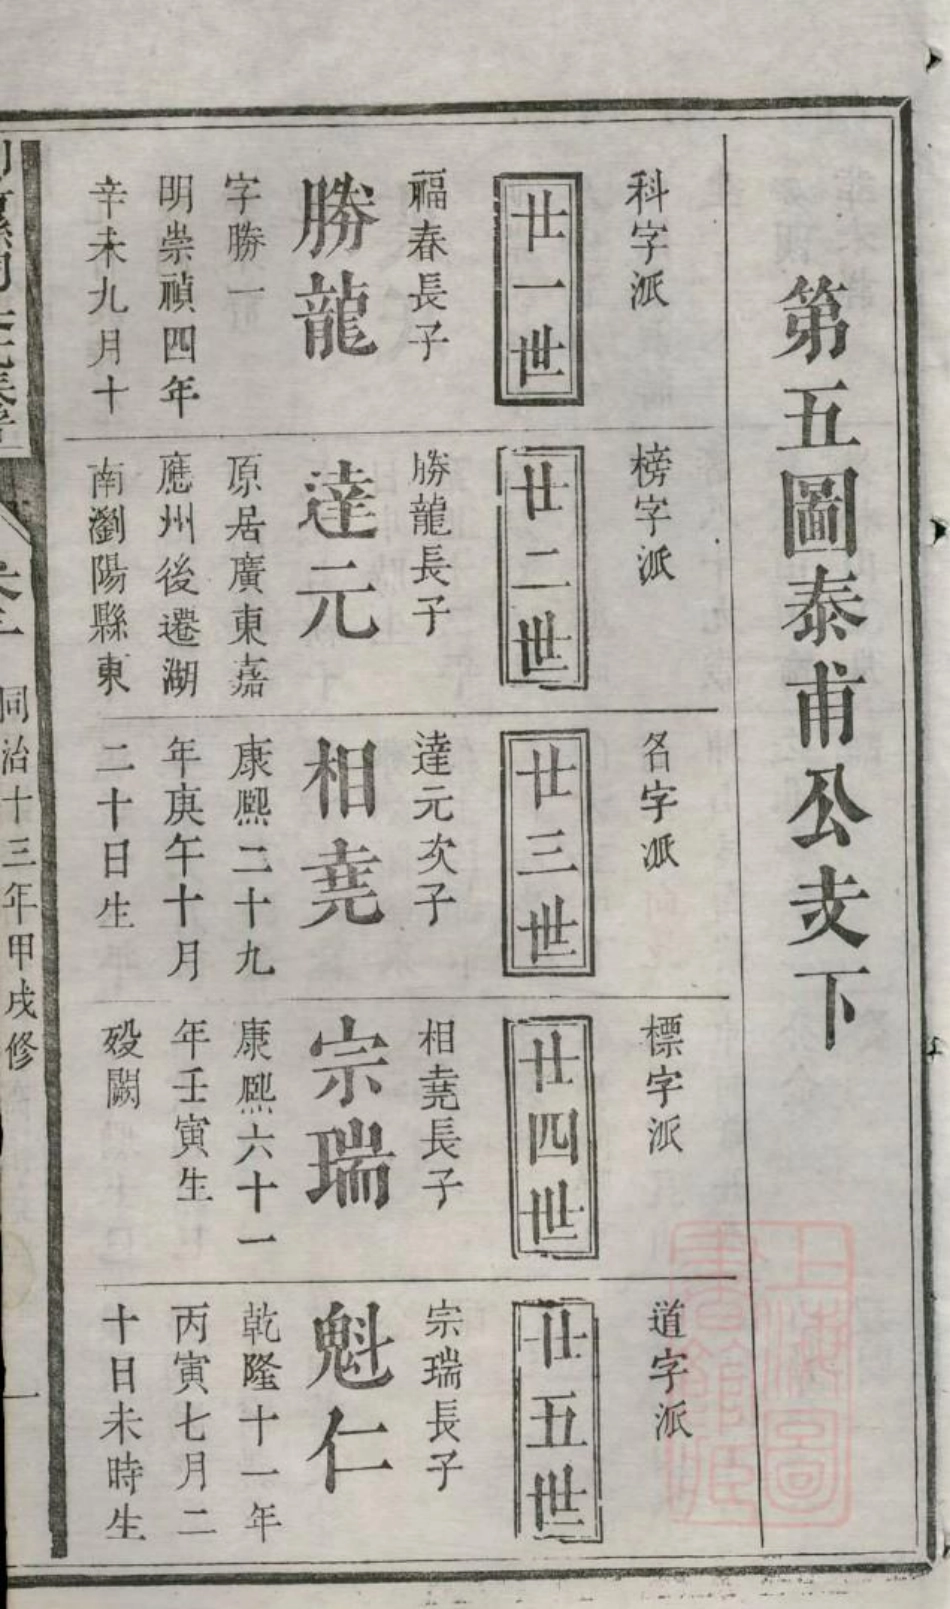 第五圖泰甫公支下
科字派
廿一世
福春長子
勝龍
字勝一
明崇禎四年
辛未九月十
榜字派
廿二世
勝龍長子
達元
原居廣東嘉
應州後遷湖
南瀏陽縣東
名字派
廿三世
達元次子
相堯
康熙二十九
年庚午十月
二十日生
標字派
廿四世
相堯長子
宗瑞
康熙六十一
年壬寅生
殁闕
道字派
廿五世
宗瑞長子
魁仁
乾隆十一年
丙寅七月二
十日未時生
同治十三年甲戌修
一
上海圖
書館藏